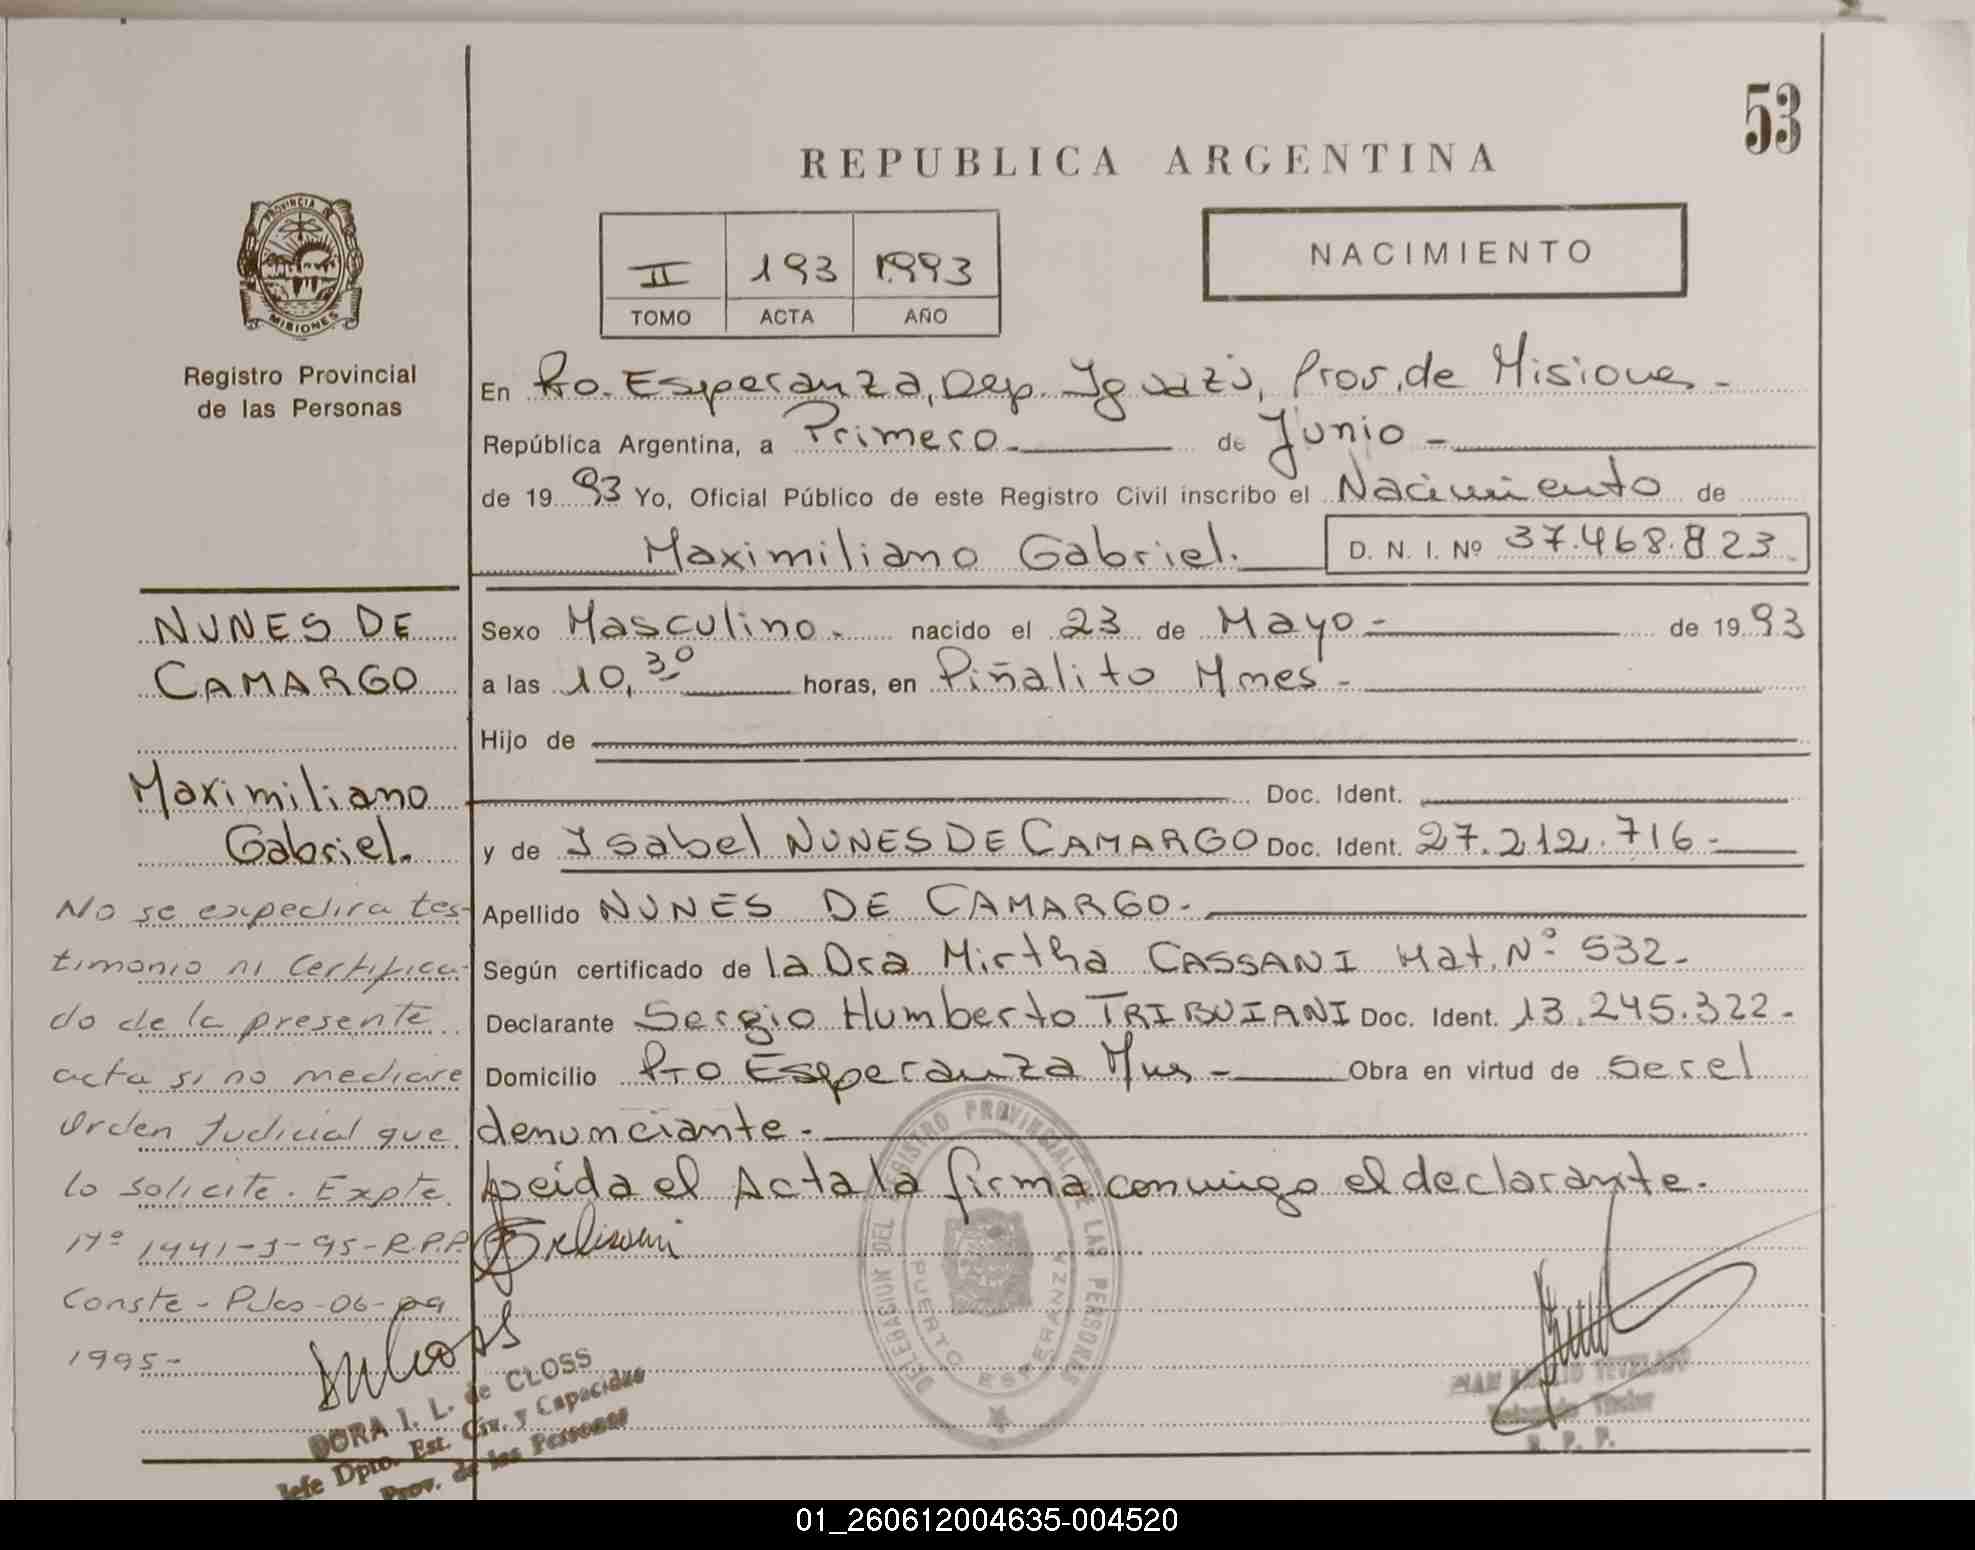 53
REPUBLICA ARGENTINA
II 193 1993
TOMO ACTA AÑO
NACIMIENTO
PROVINCIA DE
MISIONES
Registro Provincial
de las Personas
En Pto. Esperanza, Dep. Iguazú, Prov. de Misiones -
República Argentina, a Primero. de Junio -
de 1993 Yo, Oficial Público de este Registro Civil inscribo el Nacimiento de
Maximiliano Gabriel. D. N. I. Nº 37.468.823
NUNES DE
CAMARGO
Maximiliano
Gabriel.
Sexo Masculino. nacido el 23 de Mayo - de 1993
a las 10,30 horas, en Piñalito Mnes -
Hijo de
Doc. Ident.
y de Isabel NUNES DE CAMARGO Doc. Ident. 27.212.716 -
Apellido NUNES DE CAMARGO -
Según certificado de la Dra Mirtha CASSANI Mat. Nº 532 -
Declarante Sergio Humberto TRIBUIANI Doc. Ident. 13.245.322 -
Domicilio Pto Esperanza Mns - Obra en virtud de Ser el
denunciante.
Leida el Acta la firma conmigo el declarante.
No se expedira tes-
timonio ni Certifica-
do de la presente
acta si no mediare
Orden Judicial que
lo solicite. Expte.
Nº 1941-J-95-R.P.P.
Conste - Pdas-06-09
1995 -
DORA I. L. de CLOSS
Jefe Dpto. Est. Civ. y Capacidad
Prov. de las Personas
DELEGACION DEL REGISTRO PROVINCIAL DE LAS PERSONAS
PUERTO ESPERANZA
Titular
R. P. P.
01_260612004635-004520